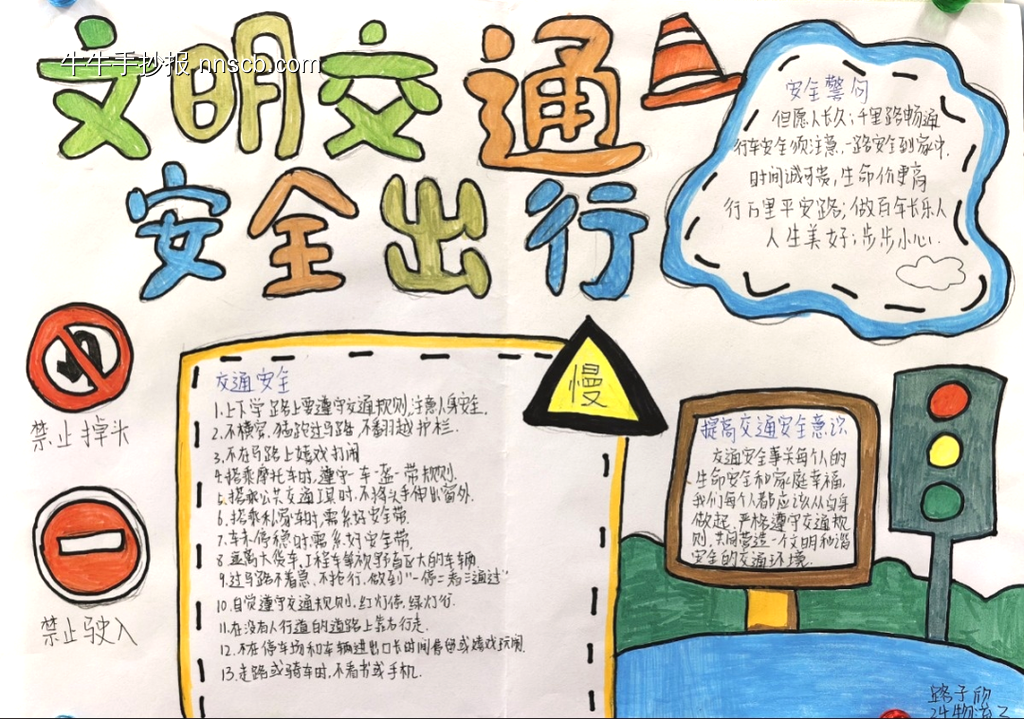 文明交通
牛牛手抄报 nnscb.com
安全出行
安全警句
但愿人长久；千里路畅通
行车安全须注意，一路安全到家中.
时间诚可贵，生命价更高
行万里平安路；做百年长乐人
人生美好；步步小心.
禁止掉头
禁止驶入
交通安全
1.上下学路上要遵守交通规则,注意人身安全.
2.不横穿、猛跑过马路,不翻越护栏.
3.不在马路上嬉戏打闹
4.搭乘摩托车时,遵守一车一盔一带规则.
5.搭乘公共交通工具时,不将头手伸出窗外.
6.搭乘私家车时,需系好安全带.
7.车未停稳时需系好安全带.
8.远离大货车、工程车等视野盲区大的车辆
9.过马路不着急、不抢行,做到"一停二看三通过"
10.自觉遵守交通规则,红灯停、绿灯行.
11.在没有人行道的道路上靠右行走.
12.不在停车场和车辆进出口长时间停留或嬉戏玩闹.
13.走路或骑车时,不看书或手机.
慢
提高交通安全意识
交通安全事关每个人的
生命安全和家庭幸福,
我们每个人都应该从自身
做起,严格遵守交通规
则,共同营造一个文明和谐
安全的交通环境.
路子欣